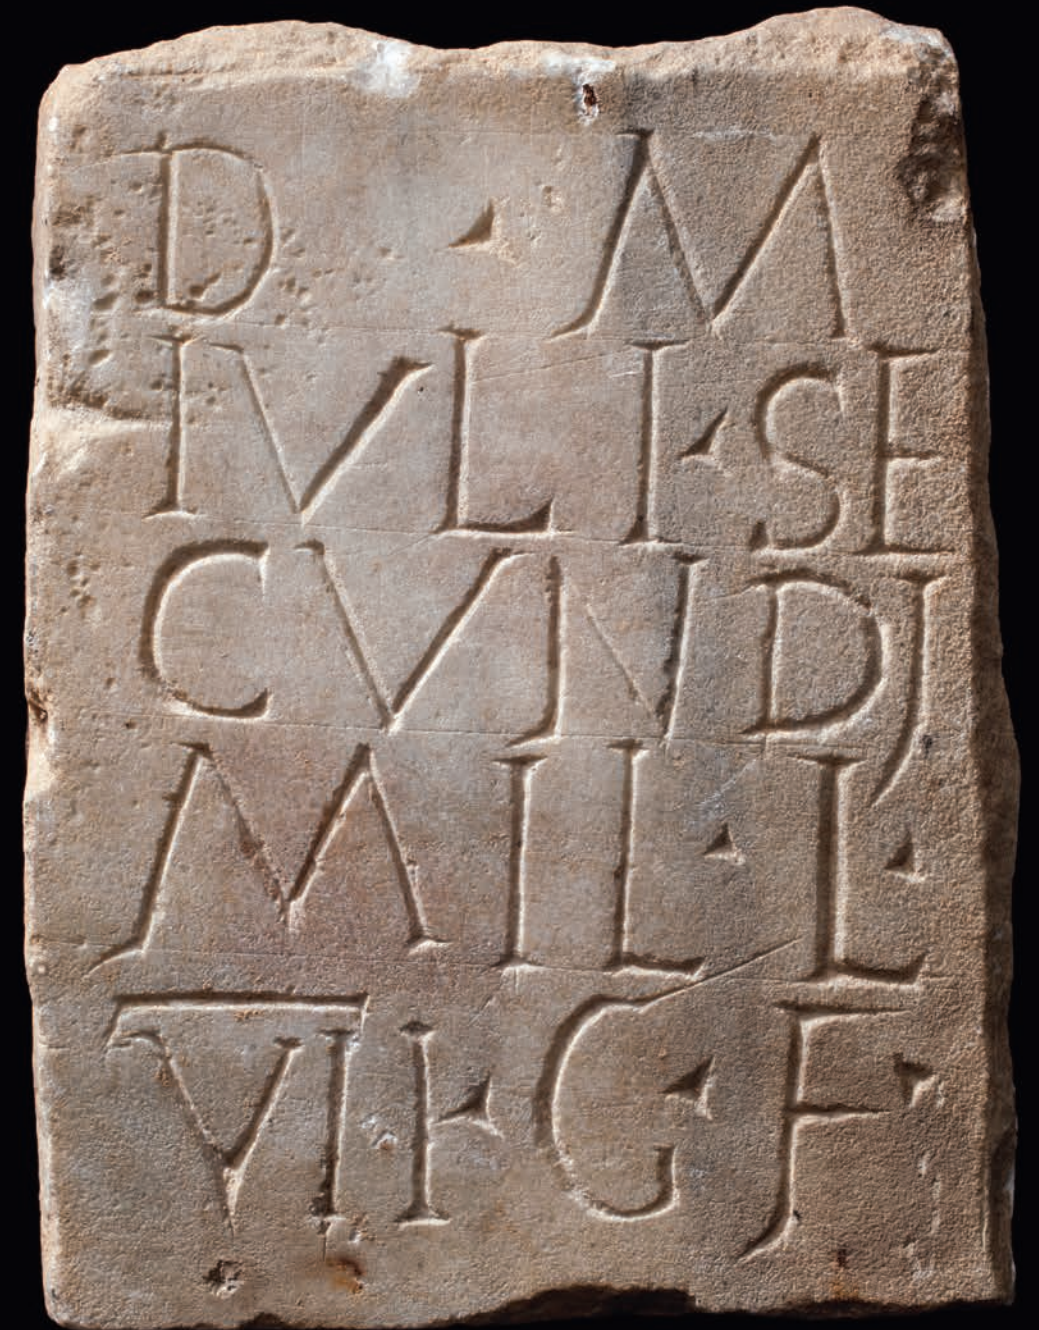 D · M
IVLI · SE
CVNDI
MIL · L ·
VII · G · F ·